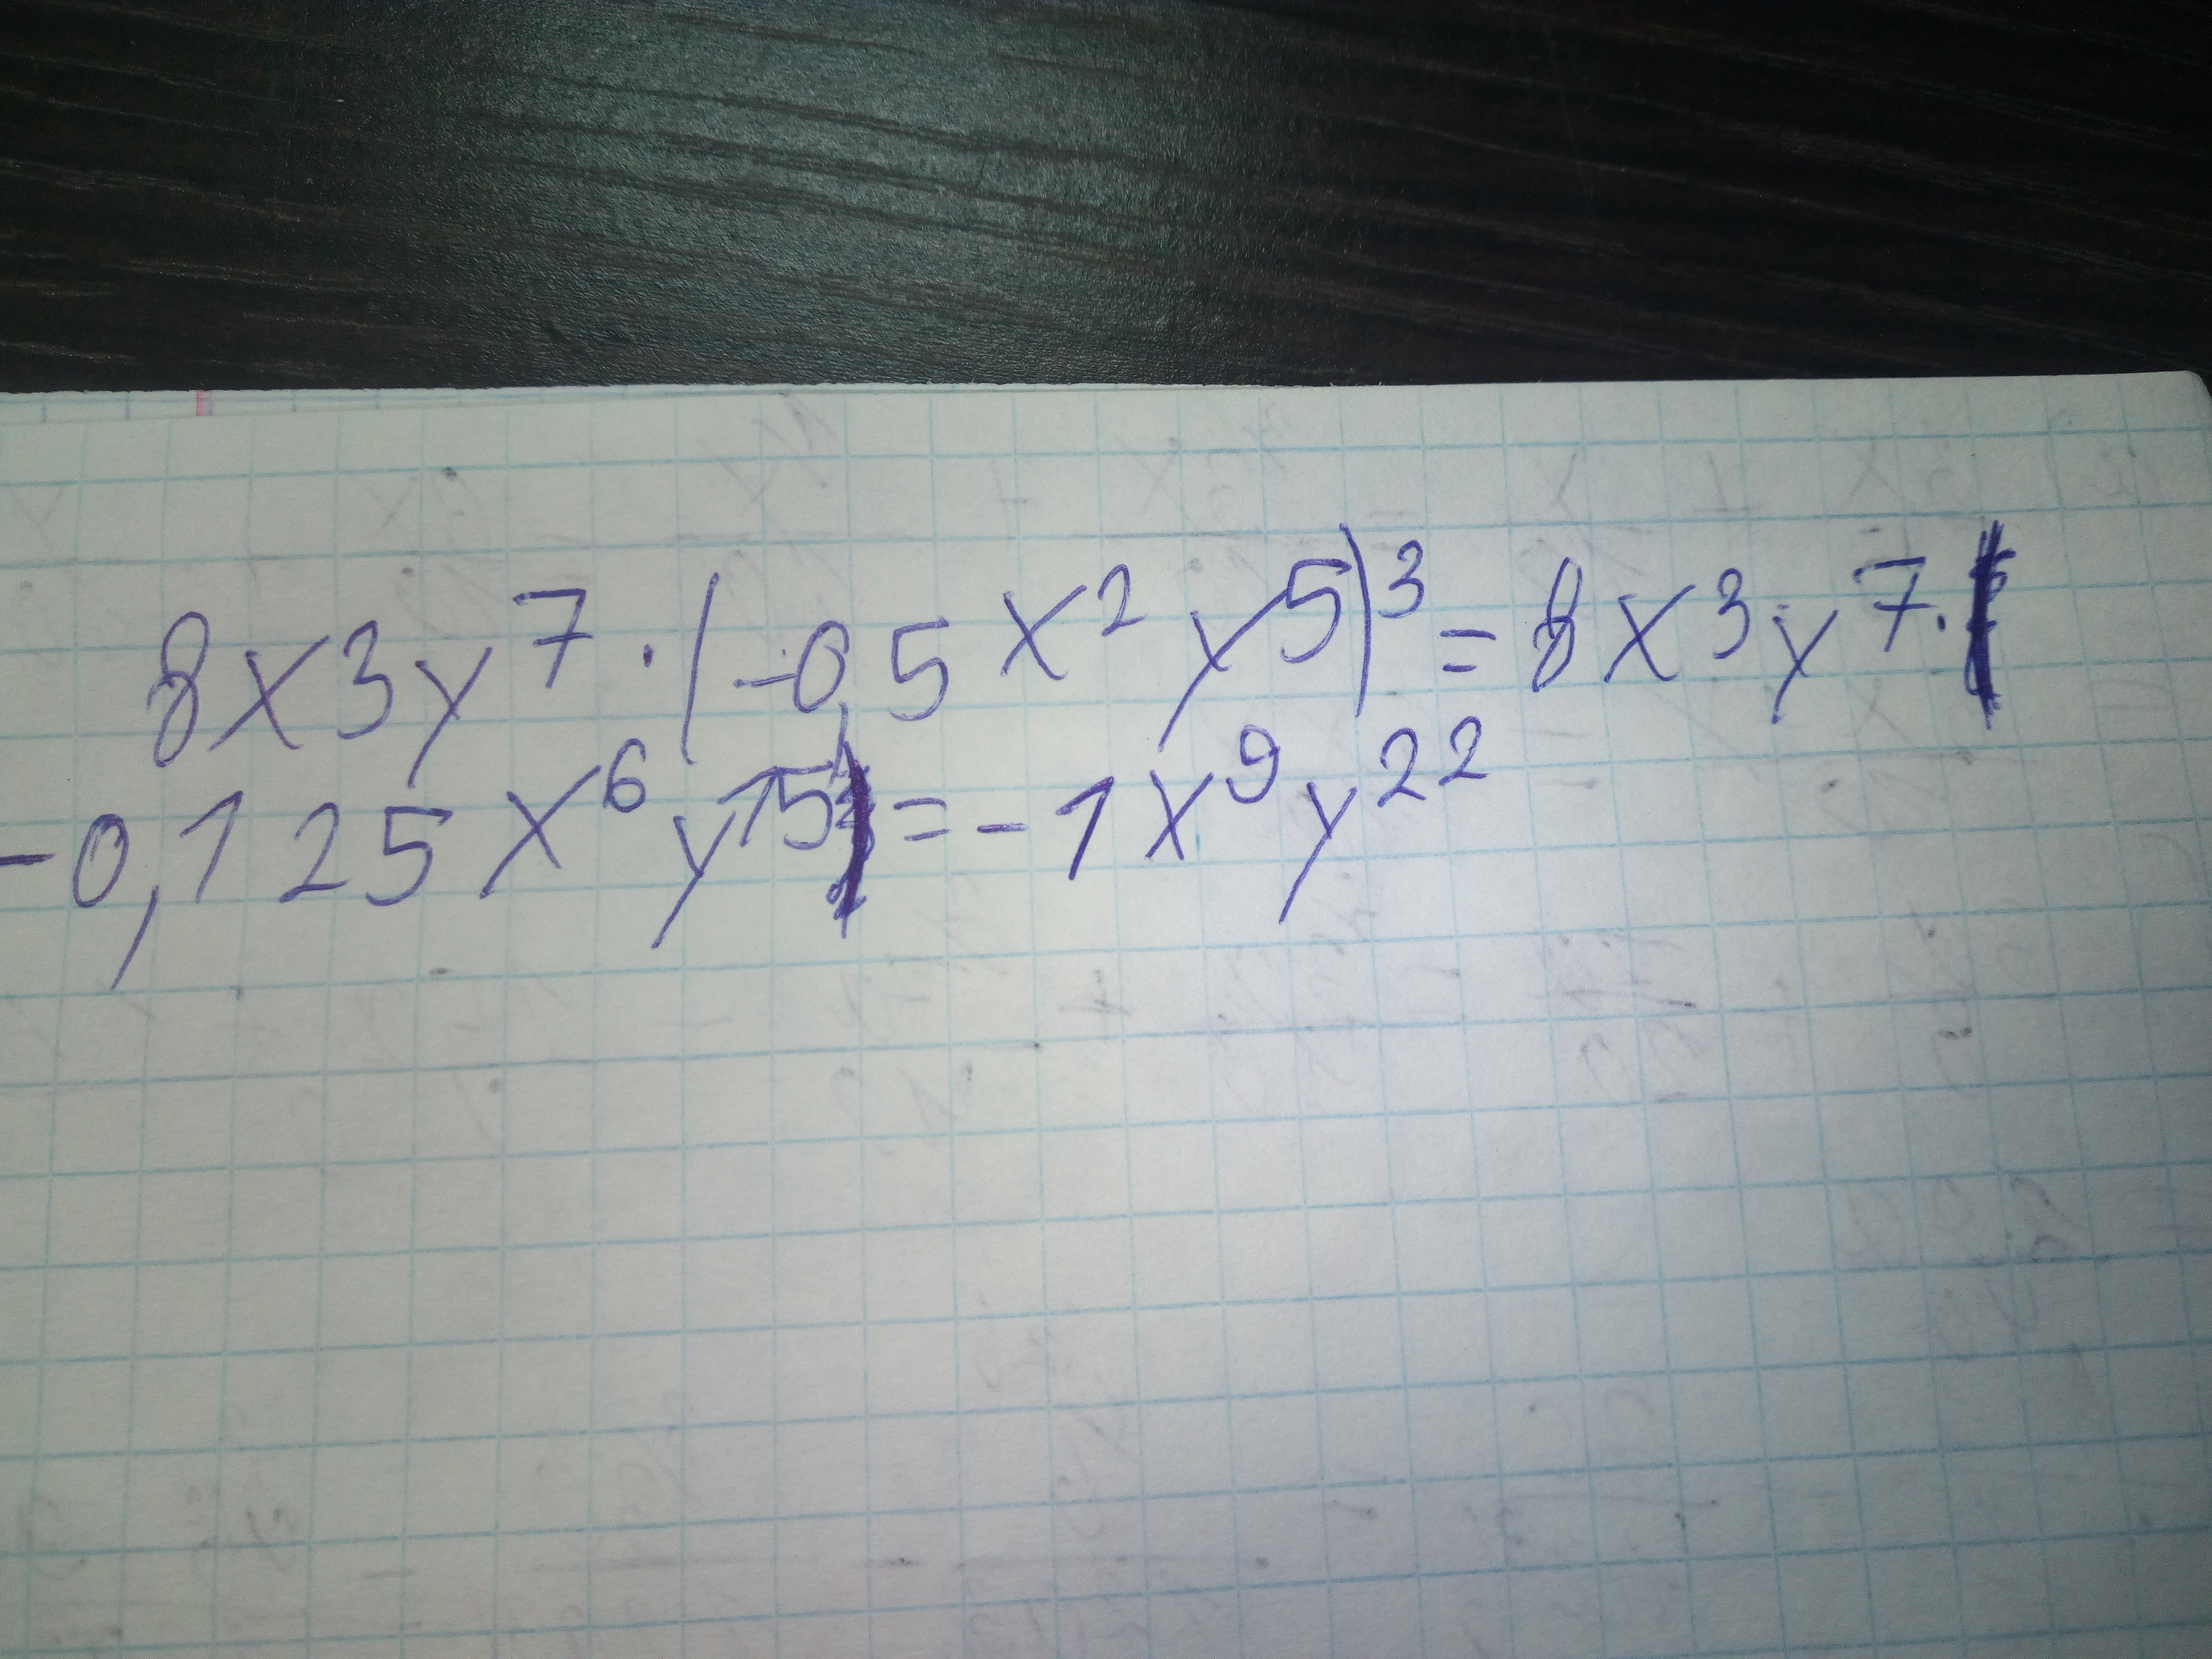 8x3y⁷·(-0,5x²y⁵)³=8x³y⁷·
-0,125x⁶y¹⁵=-1x⁹y²²